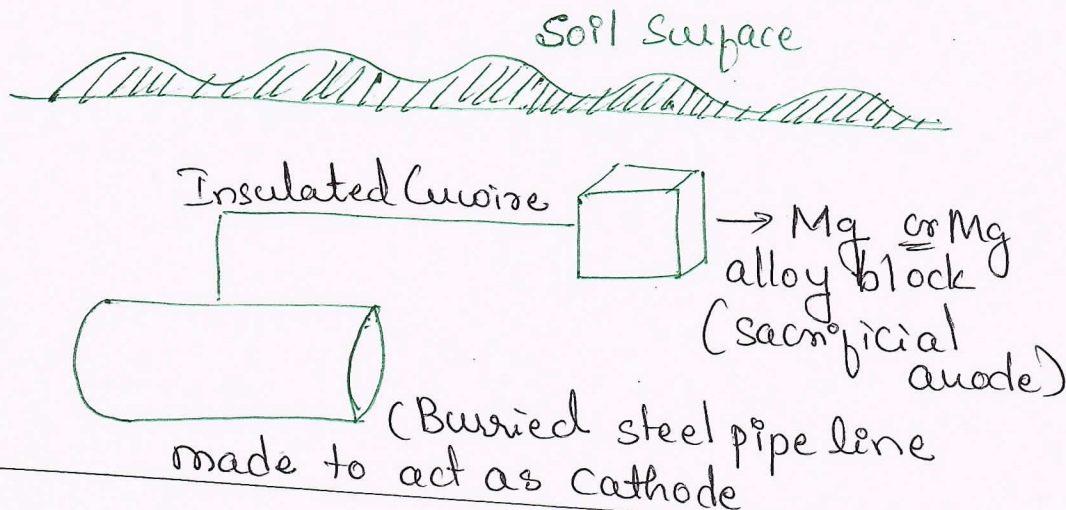 Soil Surface
Insulated Cu wire
→ Mg or Mg
alloy block
(sacrificial
anode)
(Burried steel pipe line
made to act as Cathode